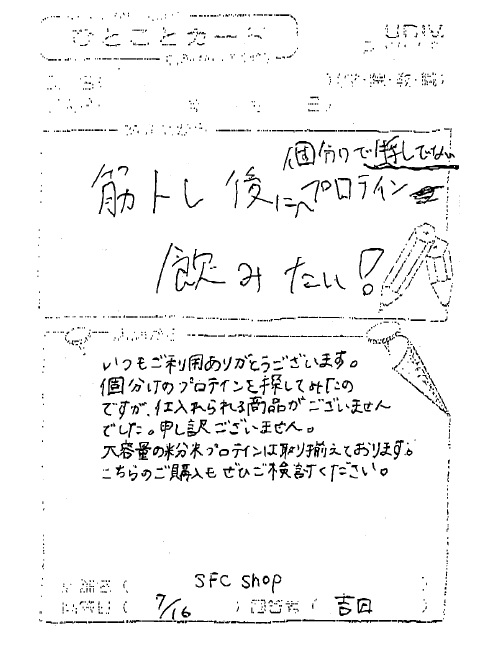 ひとことカード
UNIV.
個分けで
筋トレ後にプロテイン
飲みたい!
いつもご利用ありがとうございます。
個分けのプロテインを探してみたの
ですが、仕入れられる商品がございません
でした。申し訳ございません。
大容量の粉末プロテインは取り揃えております。
こちらのご購入もぜひご検討ください。
SFC shop
7/16 吉田